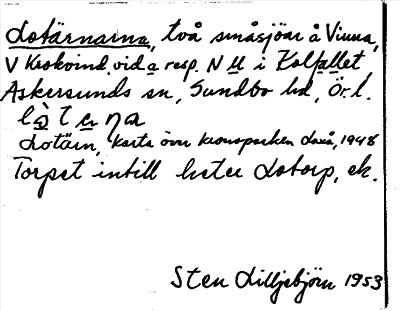 Lotärnarna, två småsjöar å Vinna,
V Keskoind. vid a resp. N u i Kolfallet
Askersunds sn, Sundbo hd, Ör. l.
Lotärn, Karta över kronoparken Laxå, 1948
Torpet intill heter Lotorp, ek.
Sten Lilljebjörn 1953